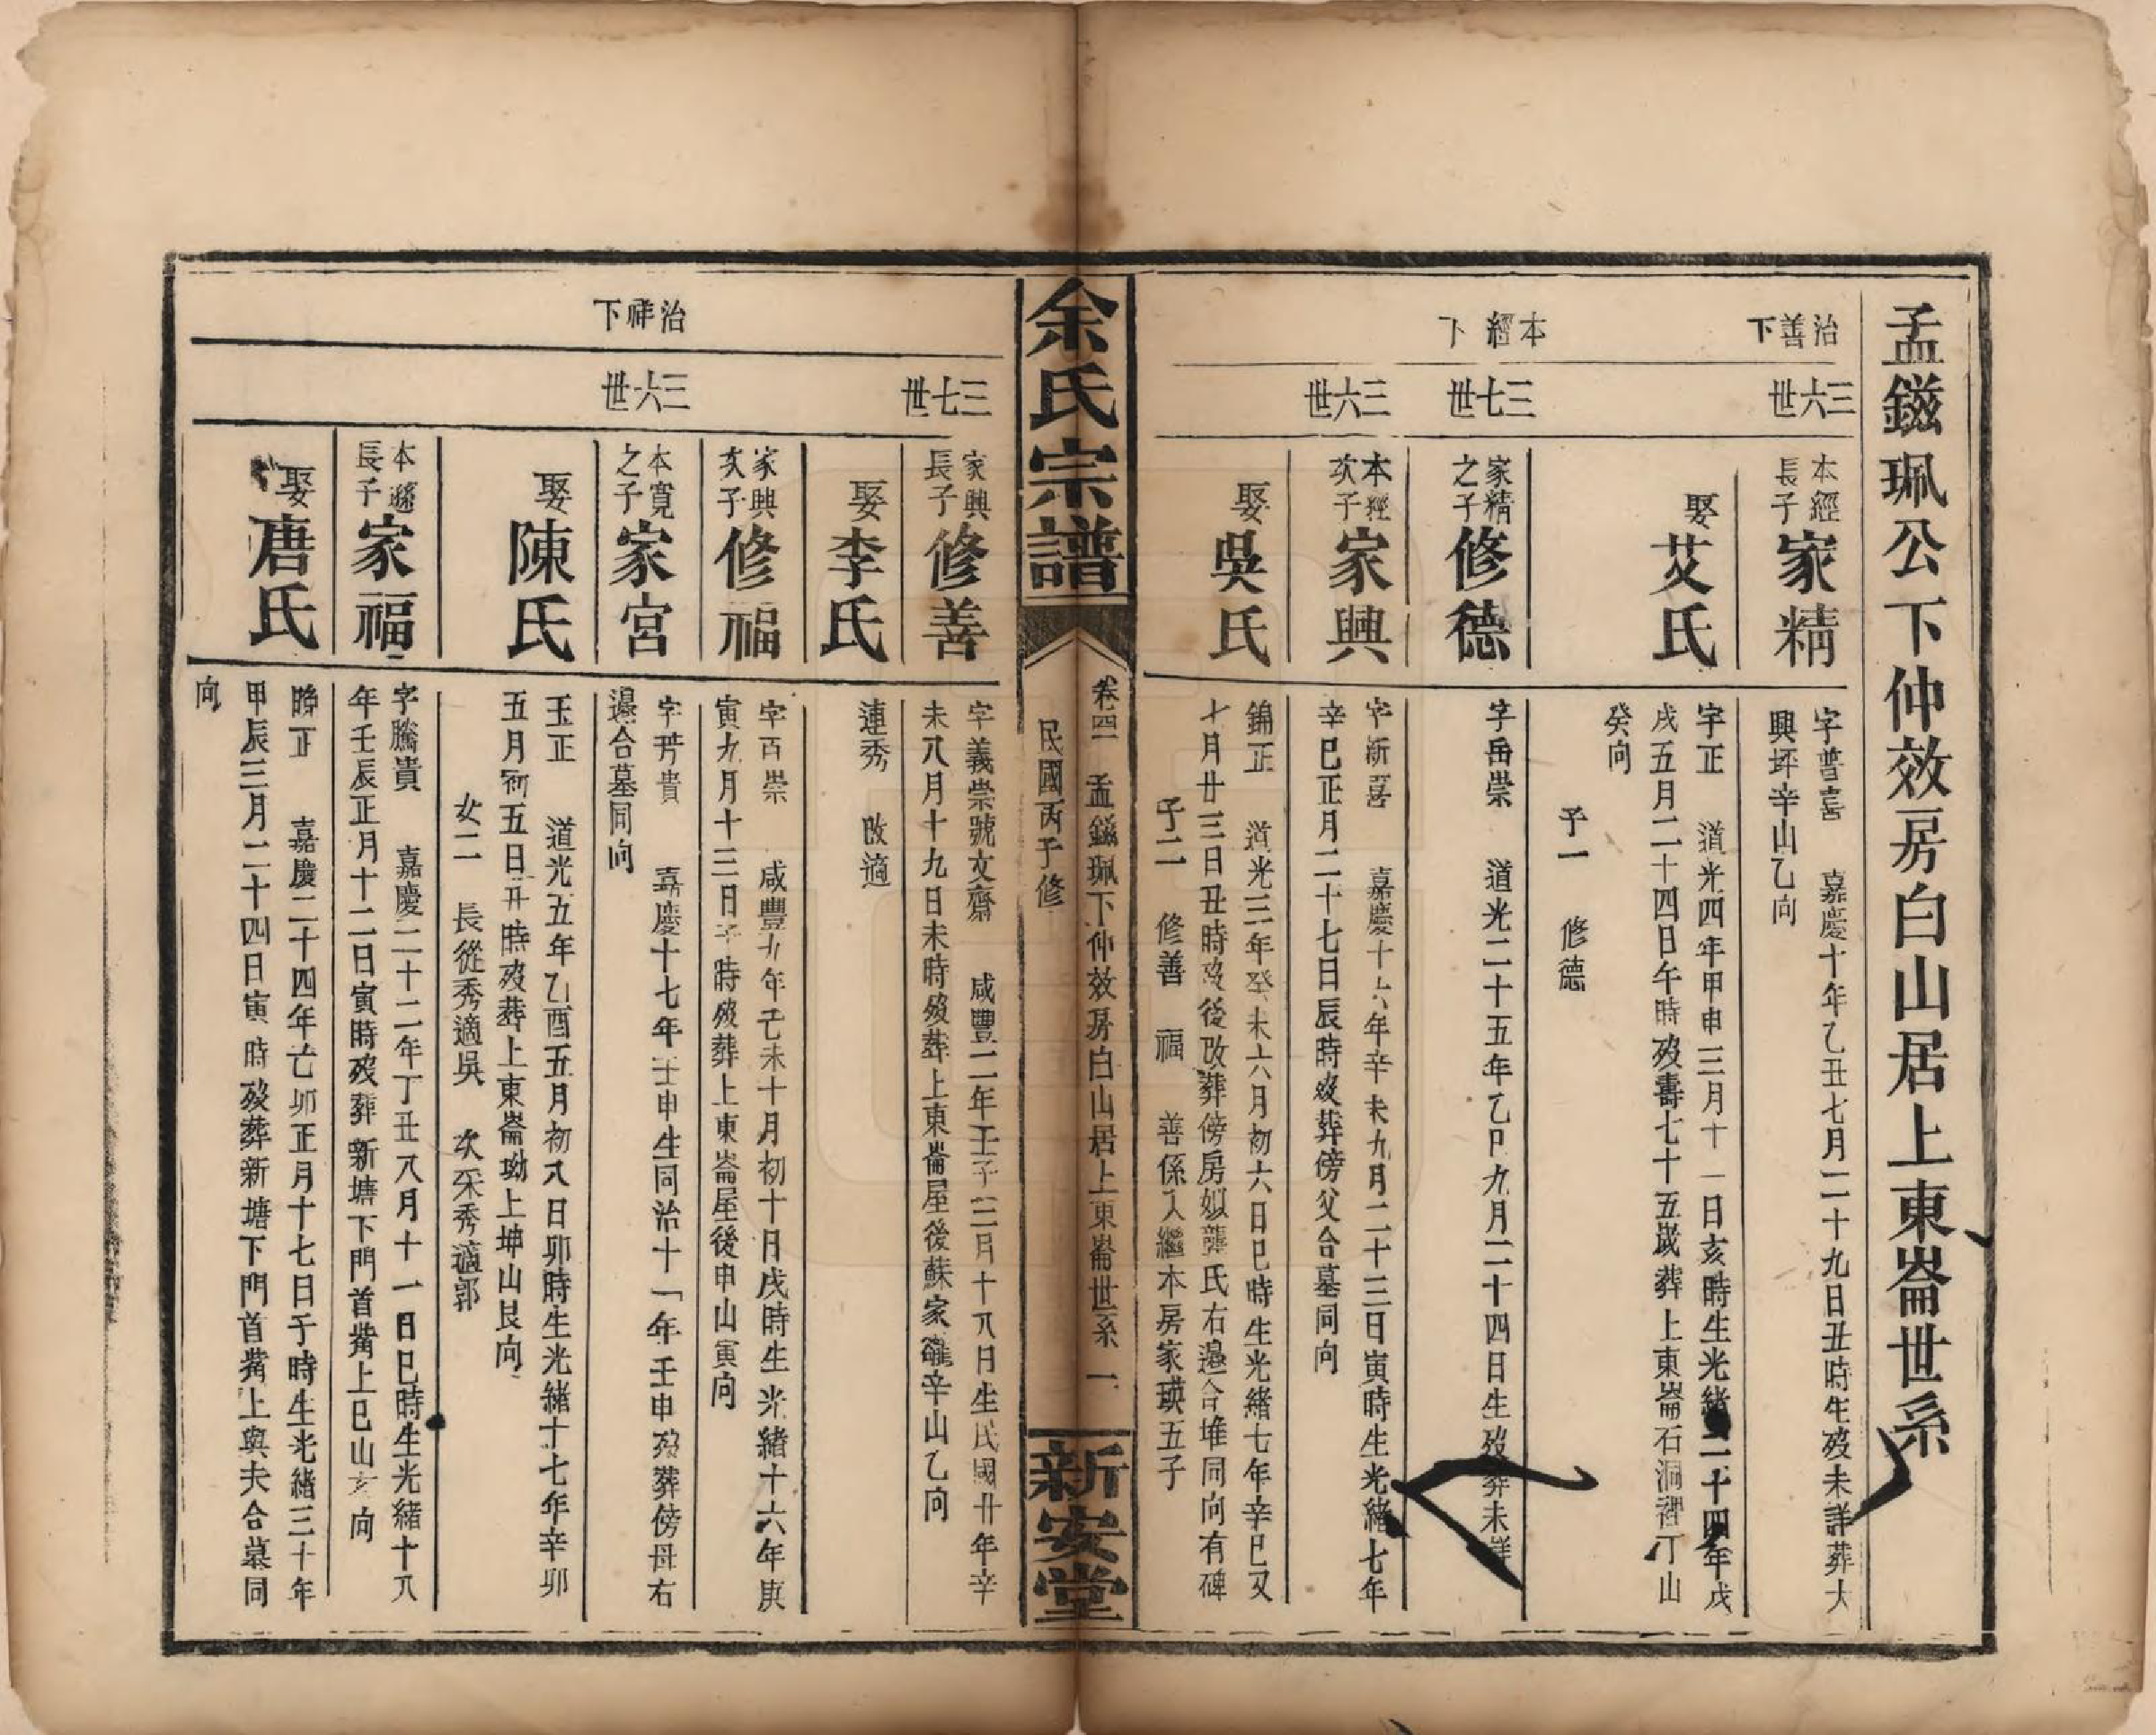 孟鎡珮公下仲效房白山居上東崙世系
治善下
三六世
本經長子
家精
字普喜 嘉慶十年乙丑七月二十九日丑時生歿未詳葬大
興坪辛山乙向
娶艾氏
字正 道光四年甲申三月十一日亥時生光緒二十四年戊
戌五月二十四日午時歿壽七十五歲葬上東崙石洞裡丁山
癸向
子一 修德
本經下
三七世
家精之子
修德
字岳崇 道光二十五年乙巳九月二十四日生歿葬未詳
三六世
本經次子
家興
字新喜 嘉慶十六年辛未九月二十三日寅時生光緒七年
辛巳正月二十七日辰時歿葬傍父合墓同向
娶吳氏
錦正 道光三年癸未六月初六日巳時生光緒七年辛巳又
七月廿三日丑時歿後改葬傍房姒龔氏右邊合堆同向有碑
子二 修善 福 善係入繼本房家瑛五子
余氏宗譜
卷四 孟鎡珮下仲效房白山居上東崙世系 一
民國丙子修
新安堂
三七世
家興長子
修善
字義崇號文齋 咸豐二年壬子三月十八日生民國廿年辛
未八月十九日未時歿葬上東崙屋後蘇家雝辛山乙向
娶李氏
連秀 改適
家興次子
修福
字百崇 咸豐九年己未十月初十日戌時生光緒十六年庚
寅九月十三日子時歿葬上東崙屋後申山寅向
治祥下
三六世
本寬之子
家宮
字芳貴 嘉慶十七年壬申生同治十一年壬申歿葬傍母右
邊合墓同向
娶陳氏
玉正 道光五年乙酉五月初八日卯時生光緒十七年辛卯
五月初五日丑時歿葬上東崙坳上坤山艮向
女二 長從秀適吳 次采秀適郭
本遜長子
家福
字騰貴 嘉慶二十二年丁丑八月十一日巳時生光緒十八
年壬辰正月十二日寅時歿葬新塘下門首嘴上巳山亥向
娶唐氏
聯正 嘉慶二十四年己卯正月十七日子時生光緒三十年
甲辰三月二十四日寅時歿葬新塘下門首嘴上與夫合墓同
向